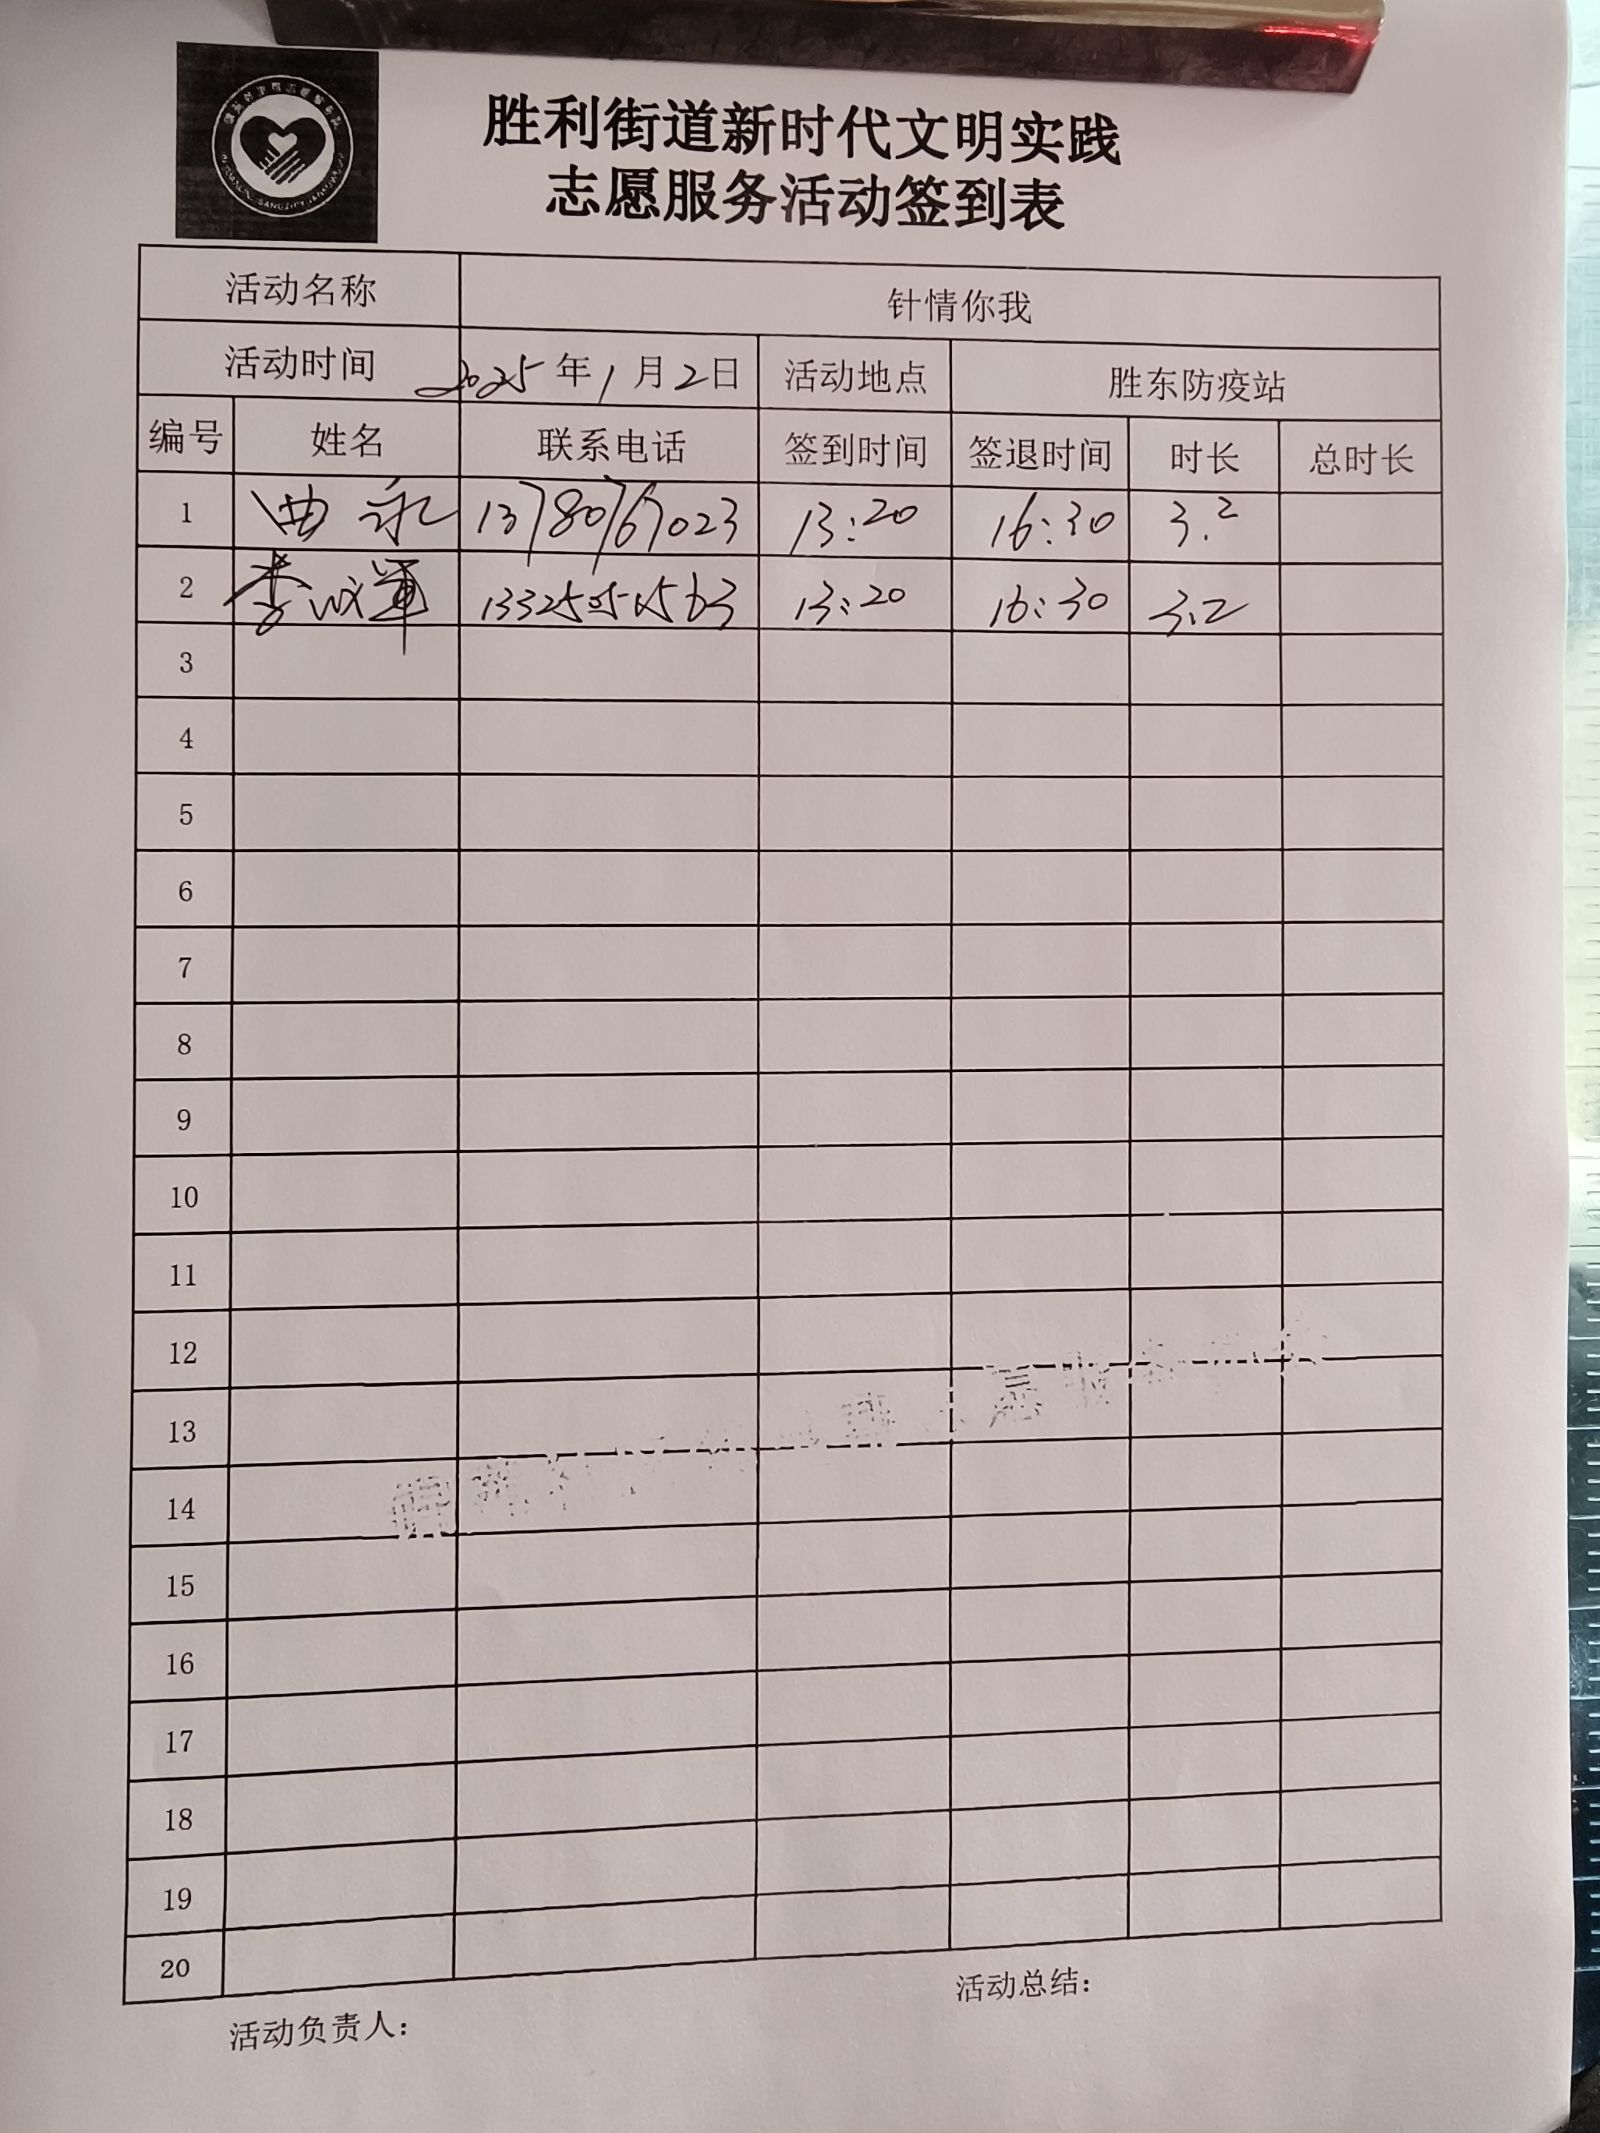 胜利街道新时代文明实践
志愿服务活动签到表
活动名称 针情你我
活动时间 2025年1月2日 活动地点 胜东防疫站
编号 姓名 联系电话 签到时间 签退时间 时长 总时长
1 曲永 13780767023 13:20 16:30 3.2
2 李 13:20 16:30 3.2
3
4
5
6
7
8
9
10
11
12
13
14
15
16
17
18
19
20
活动负责人：
活动总结：